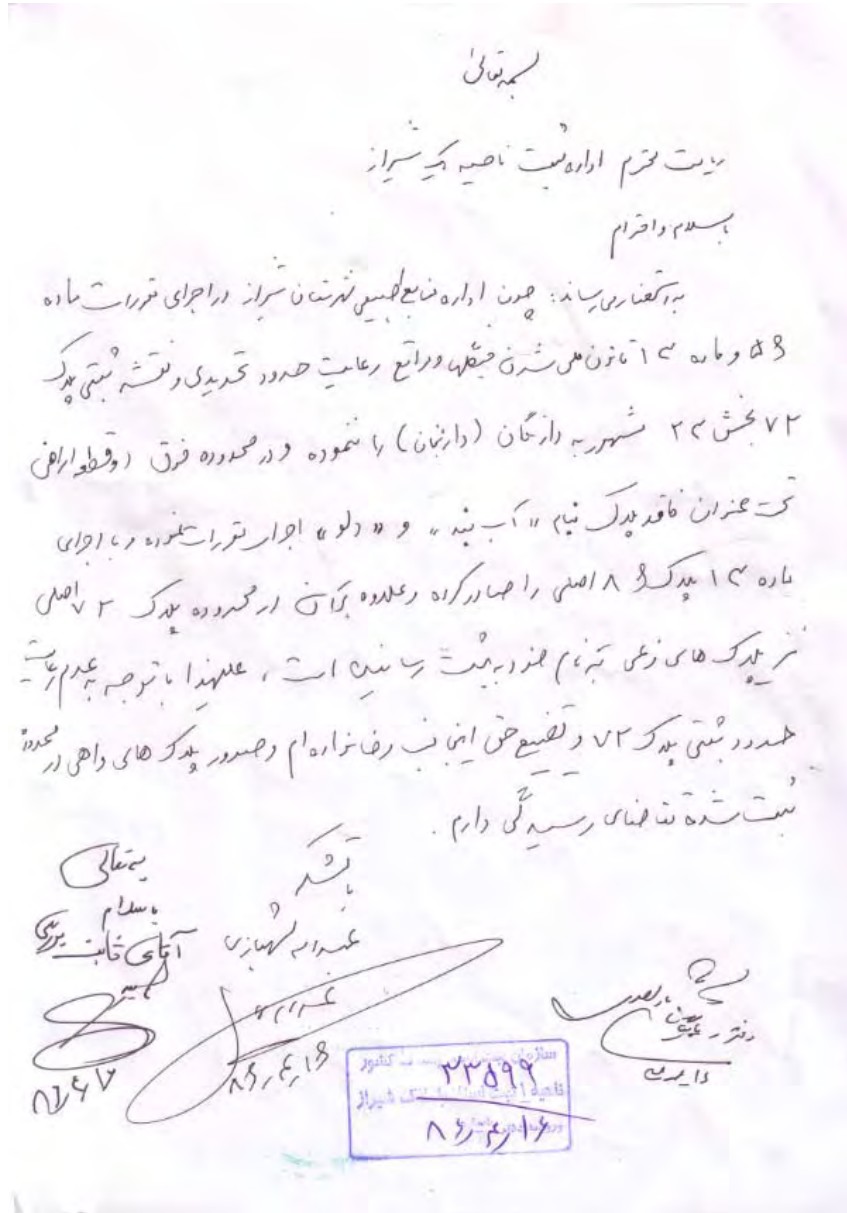 بسمه تعالی
ریاست محترم اداره ثبت ناحیه یک شیراز
با سلام و احترام
به استحضار می‌رساند: چون اداره منابع طبیعی شهرستان شیراز در اجرای مقررات ماده
۵۶ و ماده ۱۳ قانون ملی شدن جنگلها و مراتع رعایت حدود تحدیدی و نقشه ثبتی پلاک
۷۲ بخش ۲۳ مشهور به دارنگان (دارنجان) را ننموده و در محدوده فوق دو قطعه اراضی
تحت عنوان فاقد پلاک بنام «آب بند» و «دلو» اجرای مقررات نموده و با اجرای
ماده ۱۳ پلاک ۸۶ اصلی را صادر کرده و علاوه بر آن از محدوده پلاک ۷۲ اصلی
نیز پلاک های فرعی به نام خود به ثبت رسانیده است، علیهذا با توجه به عدم رعایت
حدود ثبتی پلاک ۷۲ و تضییع حق اینجانب و خانواده‌ام و صدور پلاک های واهی در محدوده
ثبت شده تقاضای رسیدگی دارم.
با تشکر
عبداله شهبازی
۸۶٫۴٫۱۶
بسمه تعالی
با سلام
آقای ثابت بررسی
دفتر
سازمان ثبت کشور
ناحیه ۱ ثبت اسناد و املاک شیراز
۳۳۵۹۹
۸۶٫۴٫۱۶